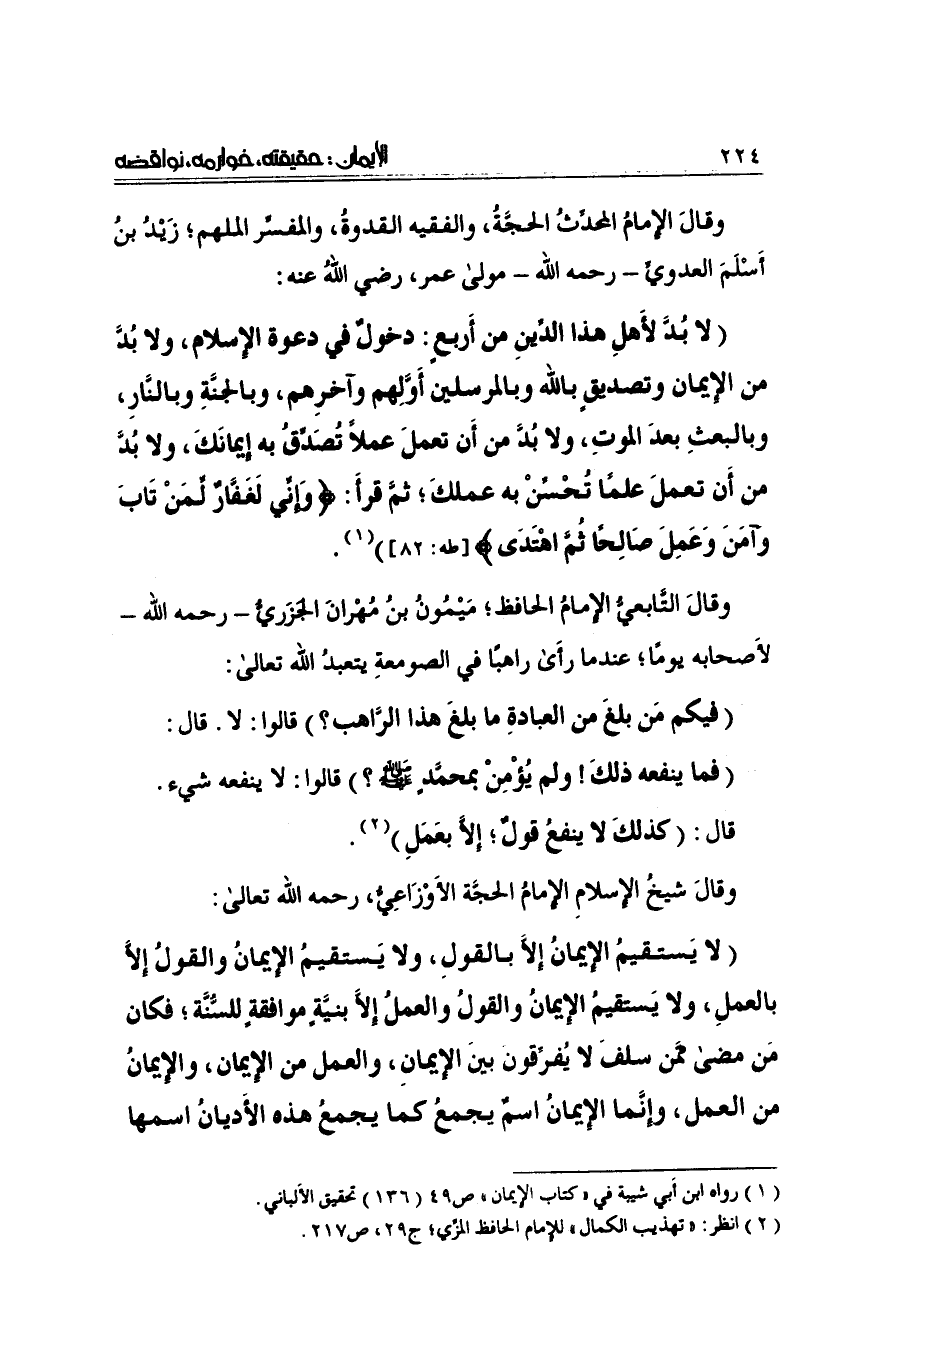 ٢٢٤
الإيمان: حقيقته، خوارمه، نواقضه
وقالَ الإمامُ المحدِّثُ الحجَّةُ، والفقيه القدوةُ، والمفسِّر الملهم؛ زَيْدُ بنُ
أَسْلَمَ العدويِّ – رحمه الله – مولىٰ عمر، رضي اللهُ عنه:
( لا بُدَّ لأهلِ هذا الدِّينِ من أَربعٍ: دخولٌ في دعوة الإسلام، ولا بُدَّ
من الإيمان وتصديقٍ بالله وبالمرسلين أَوَّلِهم وآخرِهم، وبالجنَّةِ وبالنَّارِ،
وبالبعثِ بعدَ الموتِ، ولا بُدَّ من أن تعملَ عملاً تُصَدِّقُ به إيمانَكَ، ولا بُدَّ
من أن تعملَ علمًا تُحْسِّنْ به عملكَ؛ ثمَّ قرأَ: ﴿ وَإِنِّي لَغَفَّارٌ لِّمَنْ تَابَ
وَآمَنَ وَعَمِلَ صَالِحًا ثُمَّ اهْتَدَى ﴾ [طه: ٨٢])(١).
وقالَ التَّابعيُّ الإمامُ الحافظ؛ مَيْمُونُ بنُ مُهْرانَ الجَزَريُّ – رحمه الله –
لأَصحابه يومًا؛ عندما رأَىٰ راهبًا في الصومعةِ يتعبدُ الله تعالىٰ:
( فيكم مَن بلغَ من العبادةِ ما بلغَ هذا الرَّاهب؟ ) قالوا: لا. قال:
( فما ينفعه ذلكَ! ولم يُؤْمِنْ بمحمَّدٍ ﷺ ؟ ) قالوا: لا ينفعه شيء.
قال: ( كذلكَ لا ينفعُ قولٌ؛ إلاَّ بعَمَلِ )(٢).
وقالَ شيخُ الإسلامِ الإمامُ الحجَّة الأَوْزَاعِيُّ، رحمه الله تعالىٰ:
( لا يَستقيمُ الإيمانُ إلاَّ بالقولِ، ولا يَستقيمُ الإيمانُ والقولُ إلاَّ
بالعملِ، ولا يَستقيمُ الإيمانُ والقولُ والعملُ إلاَّ بنيَّةٍ موافقةٍ للسُّنَّة؛ فكان
مَن مضىٰ ممَّن سلفَ لا يُفرِّقونَ بينَ الإيمانِ، والعمل من الإيمان، والإيمانُ
من العمل، وإنَّما الإيمانُ اسمٌ يجمعُ كما يجمعُ هذه الأَديانُ اسمها
( ١ ) رواه ابن أبي شيبة في « كتاب الإيمان » ص٤٩ ( ١٣٦ ) تحقيق الألباني.
( ٢ ) انظر: « تهذيب الكمال » للإمام الحافظ المزِّي؛ ج٢٩، ص٢١٧.